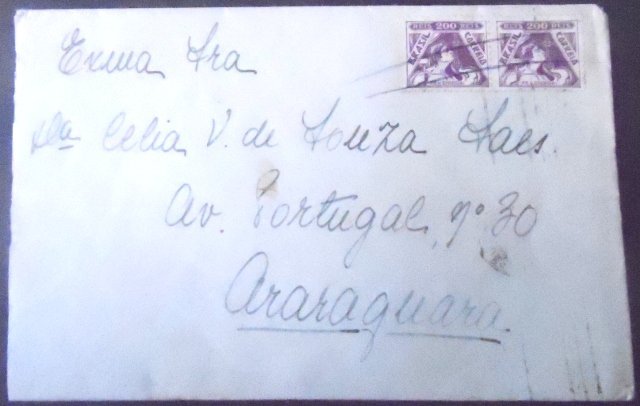 REIS 200 REIS REIS 200 REIS
BRASIL CORREIO BRASIL CORREIO
Exma Sra
Da Celia V. de Souza Saes.
Av. Portugal, nº 30
Araraquara